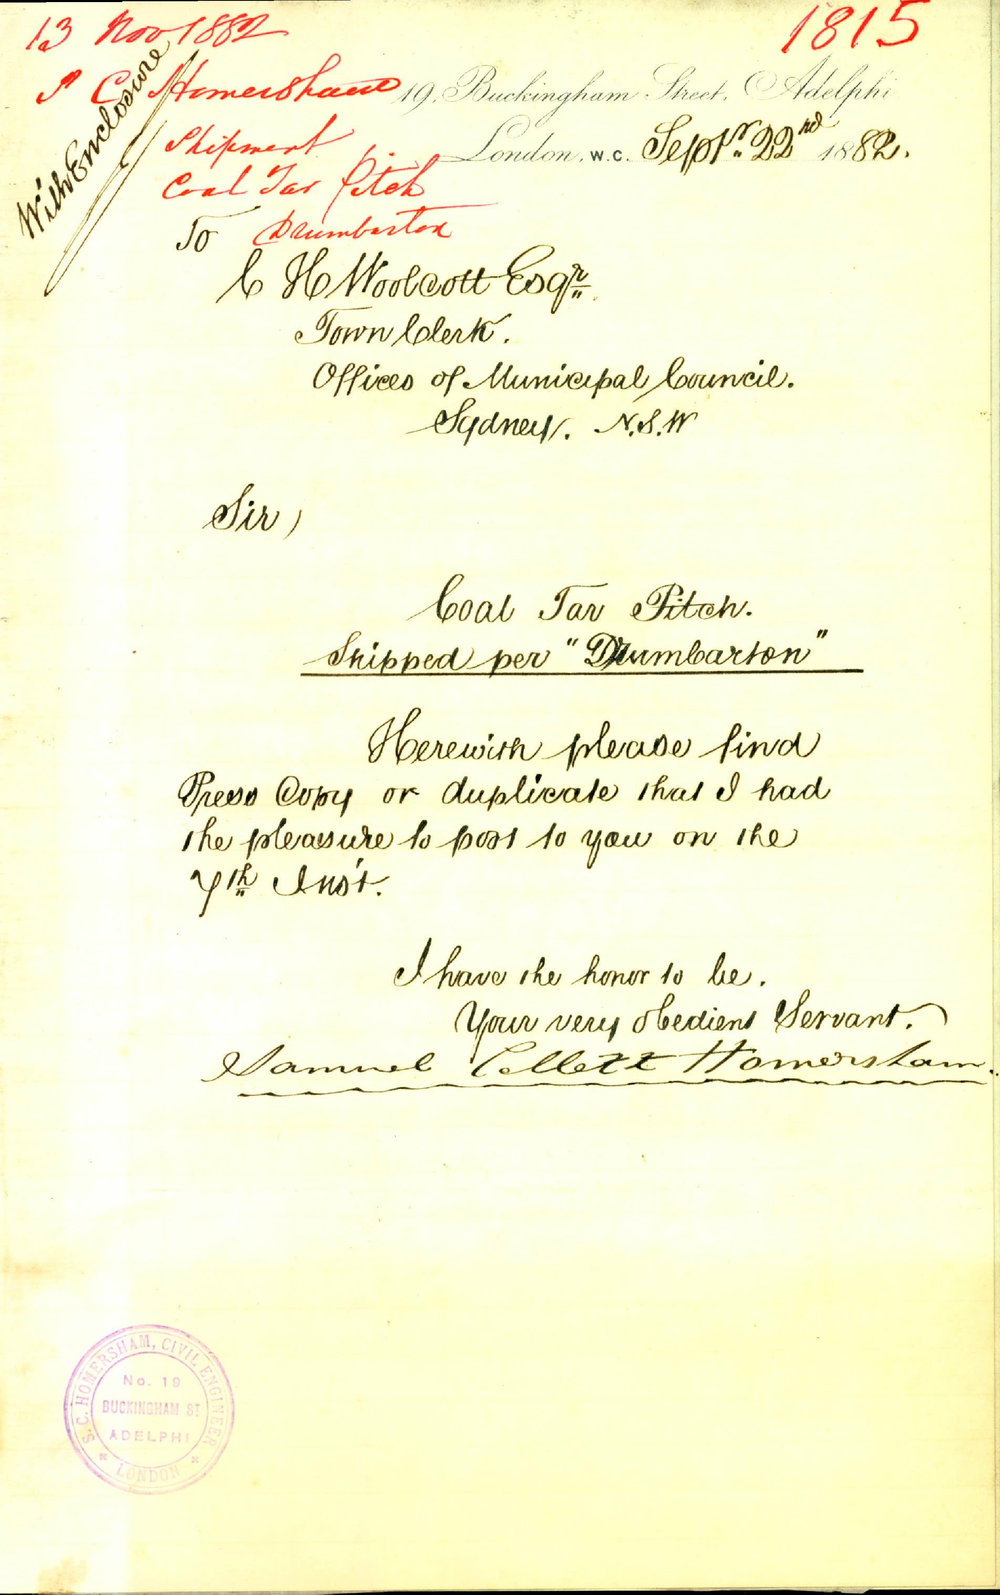 13 Nov 1882
1815
S C Homersham
With Enclosure
Shipment
Coal Tar Pitch
Drumbarton
19, Buckingham Street, Adelphi
London. W.C. Septr. 22nd 1882.
To
C H Woolcott Esqr.
Town Clerk.
Offices of Municipal Council.
Sydney. N.S.W
Sir,
Coal Tar Pitch.
Shipped per "Drumbarton"
Herewith please find
Press Copy or duplicate that I had
the pleasure to post to you on the
7th Inst.
I have the honor to be.
Your very obedient Servant.
Samuel Collett Homersham.
S. C. HOMERSHAM, CIVIL ENGINEER
No. 19
BUCKINGHAM ST
ADELPHI
LONDON